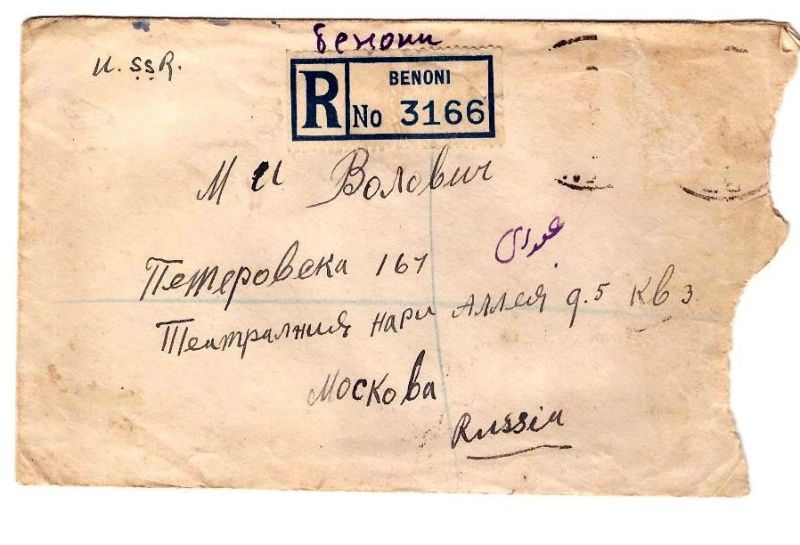 Бенони
U.SSR.
BENONI
R No 3166
М И Волович
Петеровска 167
Театралния нари Аллея д.5 Кв 3
Москова
Russia